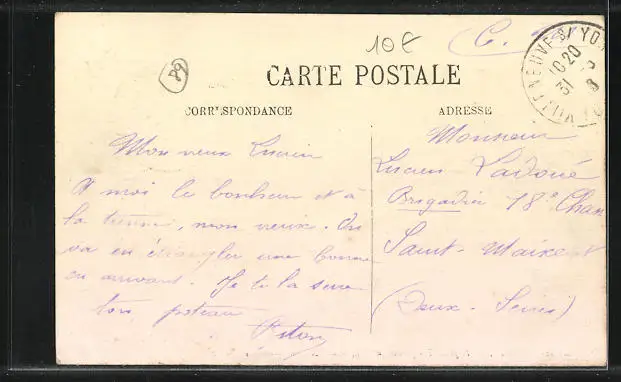 10€
C.
89
VILLENEUVE S/ YON
10 20
31
8
CARTE POSTALE
CORRESPONDANCE
ADRESSE
Mon vieux Lucien
A moi le bonheur et à
la tienne, mon vieux. On
va en étrangler une bonne
en arrivant. Je te la serre
ton poteau
Monsieur
Lucien Ladoué
Brigadier 18e Chas
Saint-Maixent
(Deux-Sèvres)